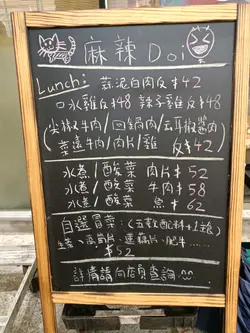 麻辣Doi
Lunch: 蒜泥白肉反$42
口水雞反$48 辣子雞反$48
(尖椒牛肉/回鍋肉/云耳
菜遠牛肉/肉片/雞 反$42)
水煮/酸菜 肉片$52
水煮/酸菜 牛肉$58
水煮/酸菜 魚$62
自選冒菜:(五款配料+1
萵筍片、蓮藕片、肥牛……
$52
詳情請向店員查詢